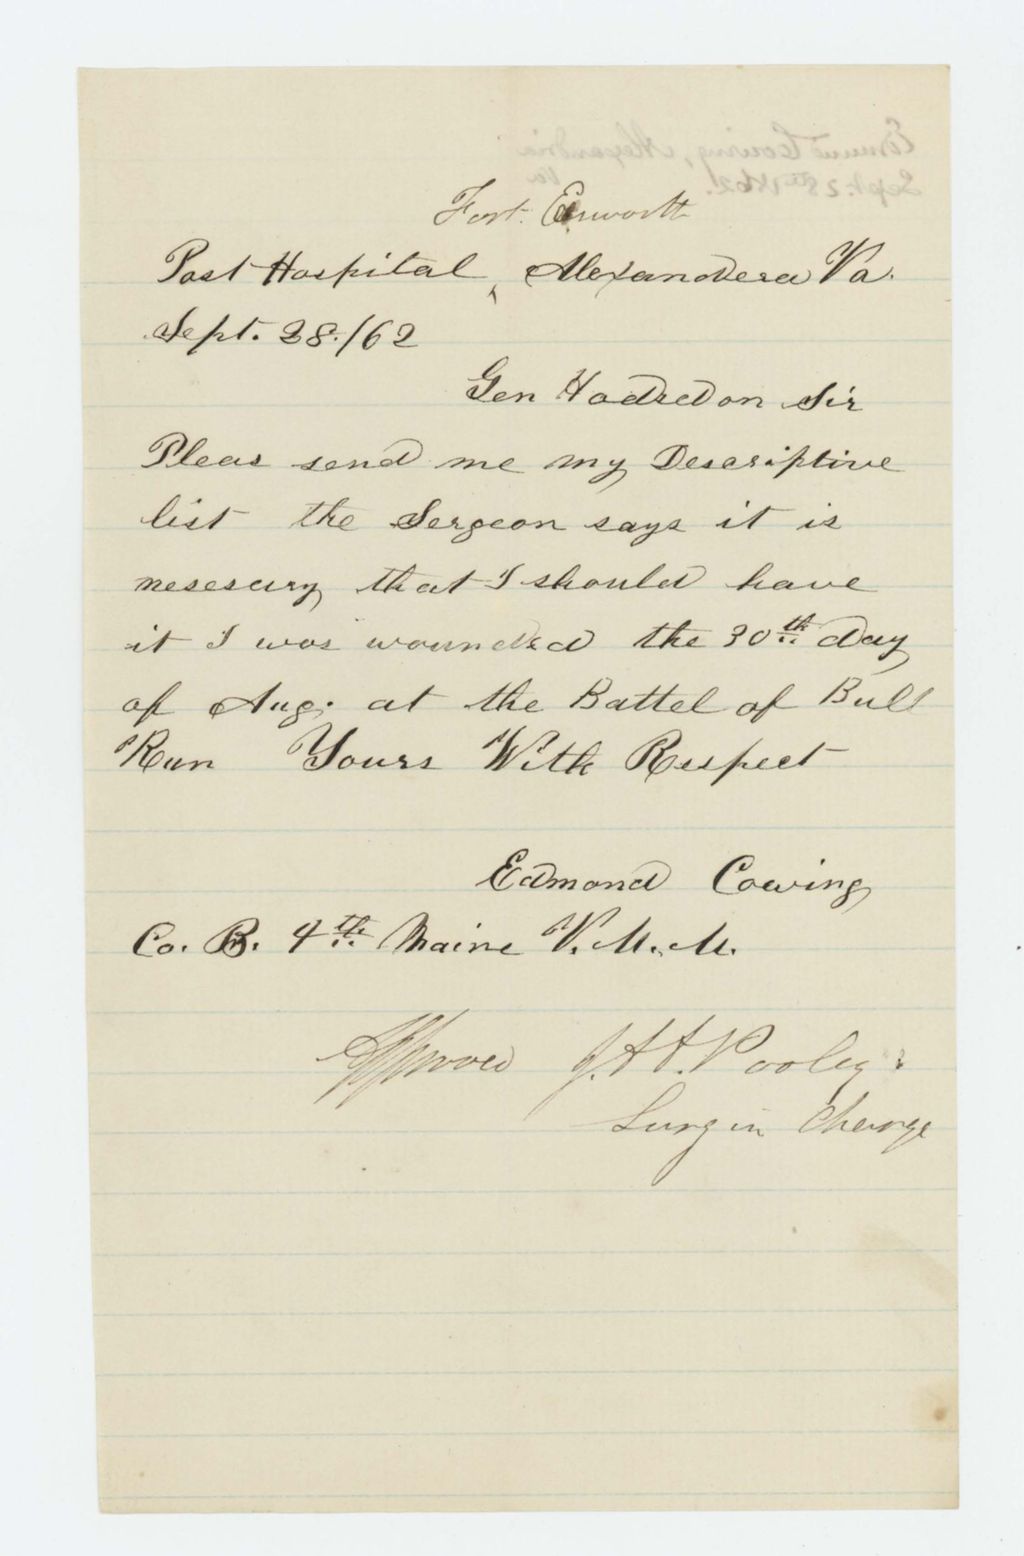 Fort. Elsworth
Post Hospital, Alexandera Va.
Sept. 28./62
Gen Hodsdon Sir
Pleas send me my Descriptive
list the Sergeon says it is
nesescary that I should have
it I was wounded the 30th day
of Aug. at the Battel of Bull
Run Yours With Respect
Edmond Cowing
Co. B. 4th Maine V. M. M.
Approved J. H. Pooley
Surg in Charge